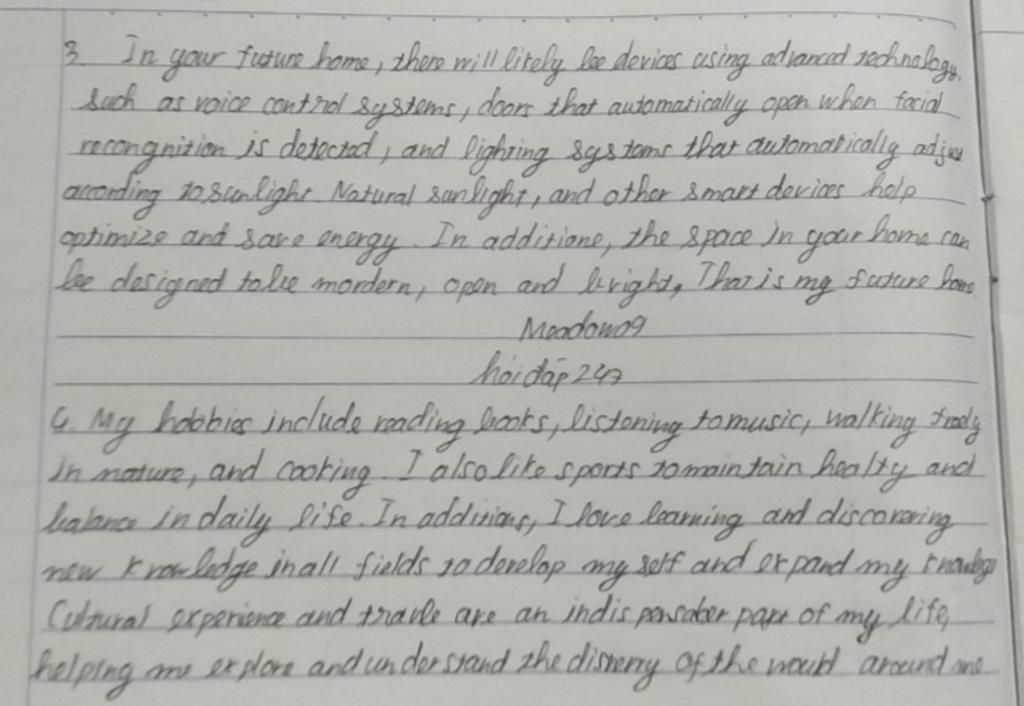 3. In your future home, there will likely be devices using advanced technology,
such as voice control systems, doors that automatically open when facial
recongnition is detected, and lighting systems that automatically adjust
according to sunlight Natural sunlight, and other smart devices help
optimize and save energy. In additione, the space in your home can
be designed to be mordern, open and bright, That is my future home
Meadow09
hỏi đáp 247
4. My hobbies include reading books, listening to music, walking freely
in nature, and cooking. I also like sports to maintain healty and
balance in daily life. In additions, I love learning and discovering
new knowledge in all fields to develop my self and expand my
Cultural experience and travle are an part of my life,
helping me explore and understand the of the around me